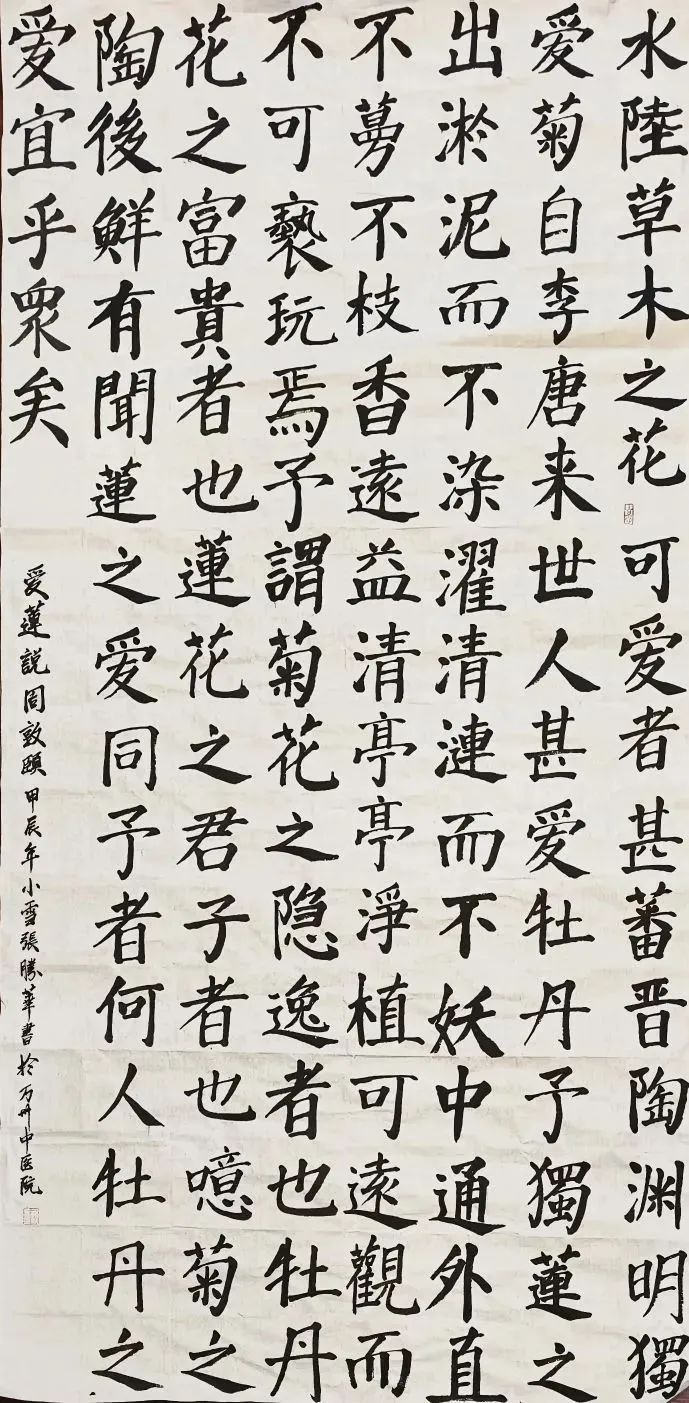 水陸草木之花可爱者甚蕃晋陶渊明獨
爱菊自李唐来世人甚爱牡丹予獨蓮之
出淤泥而不染濯清漣而不妖中通外直
不蔓不枝香遠益清亭亭淨植可遠觀而
不可褻玩焉予謂菊花之隐逸者也牡丹
花之富貴者也蓮花之君子者也噫菊之
陶後鮮有聞蓮之爱同予者何人牡丹之
爱宜乎眾矣
爱蓮說周敦頤甲辰年小雪張勝華書於万州中医院